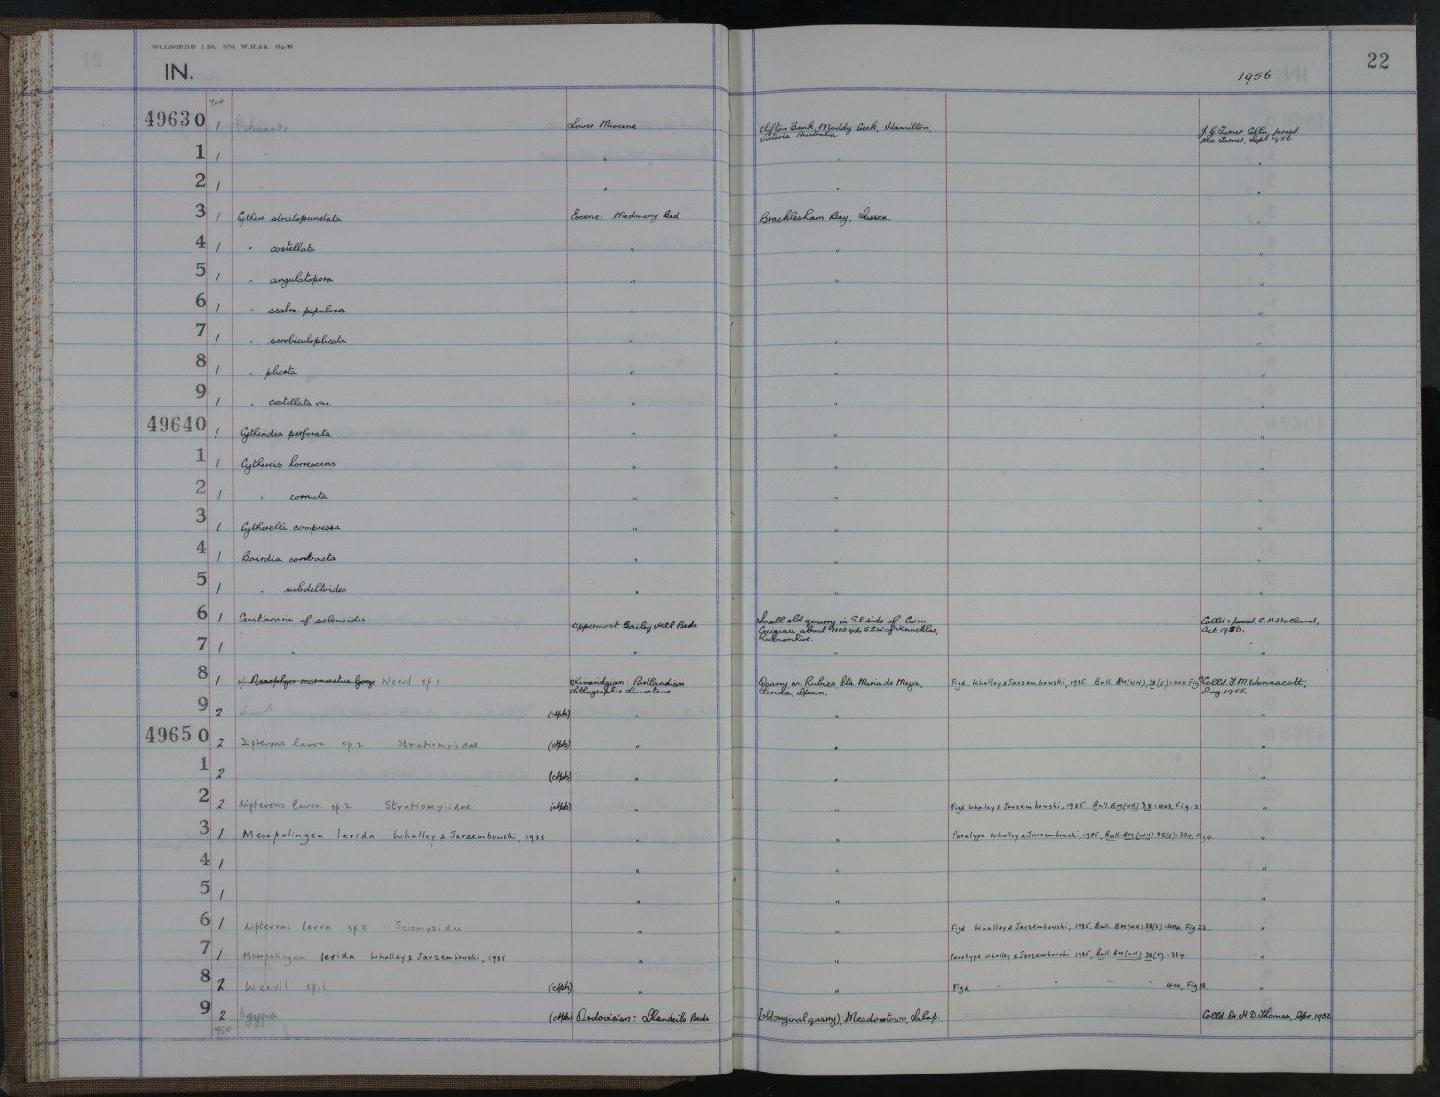 IN.
1956
22
49630 1 Lower Miocene Clifton Bank, Muddy Creek, Hamilton, Victoria Australia J.G. Turner Colln, presd. Mrs. Turner, Sept. 1956.
1 1 " " "
2 1 " " "
3 1 Cythere striatopunctata Eocene: Bed Bracklesham Bay, Sussex. "
4 1 " costellata " " "
5 1 " angulatopora " " "
6 1 " " " "
7 1 " scrobiculoplicata " " "
8 1 " plicata " " "
9 1 " costellata var. " " "
49640 1 Cytheridea perforata " " "
1 1 Cythereis horrescens " " "
2 1 " cornuta " " "
3 1 Cytherella compressa " " "
4 1 Bairdia contracta " " "
5 1 " subdeltoidea " " "
6 1 of solenoides Uppermost Bailey Hill Beds Small old quarry in S.E. side of Cwm about yds S.S.W. of Knucklas, Radnorshire. Oct. 1956.
7 1 " " " "
8 1 Weevil sp. 1 Kimeridgian: Portlandian Lithographic Limestone Quarry nr. Rubies, Sta Maria de Meya, Lerida, Spain. Figd. Whalley & Jarzembowski, 1985 Bull. BM(NH), 38(5): 400 Fig Colld. F.M. Wonnacott, Aug. 1955.
9 2 (ctpts) " " "
49650 2 Dipterous larva sp 2 Stratiomyiidae (ctpts) " " "
1 2 (ctpts) " " "
2 2 dipterous larva sp. 2 Stratiomyiidae (ctpts) " " Figd Whalley & Jarzembowski, 1985 Bull. BM(NH) 38: 403, Fig. 2 "
3 1 Mesopalingea lerida Whalley & Jarzembowski, 1985 " " Paratype Whalley & Jarzembowski, 1985, Bull. BM(NH) 38(5): 384, "
4 1 " " "
5 1 " " "
6 1 dipterous larva sp 3 Sciomyzidae " " Figd Whalley & Jarzembowski, 1985 Bull. BM(NH) 38(5): 404 Fig 22. "
7 1 Mesopalingea lerida Whalley & Jarzembowski, 1985 " " Paratype Whalley & Jarzembowski 1985, Bull BM(NH) 38(5): 384 "
8 2 Weevil sp. 1 (ctpts) " " Figd " " " 400, Fig 18. "
9 2 Ogygia (ctpts) Ordovician: Llandeilo Beds [old original quarry], Meadowtown, Salop. Colld. Dr H D Thomas, Apr. 1932